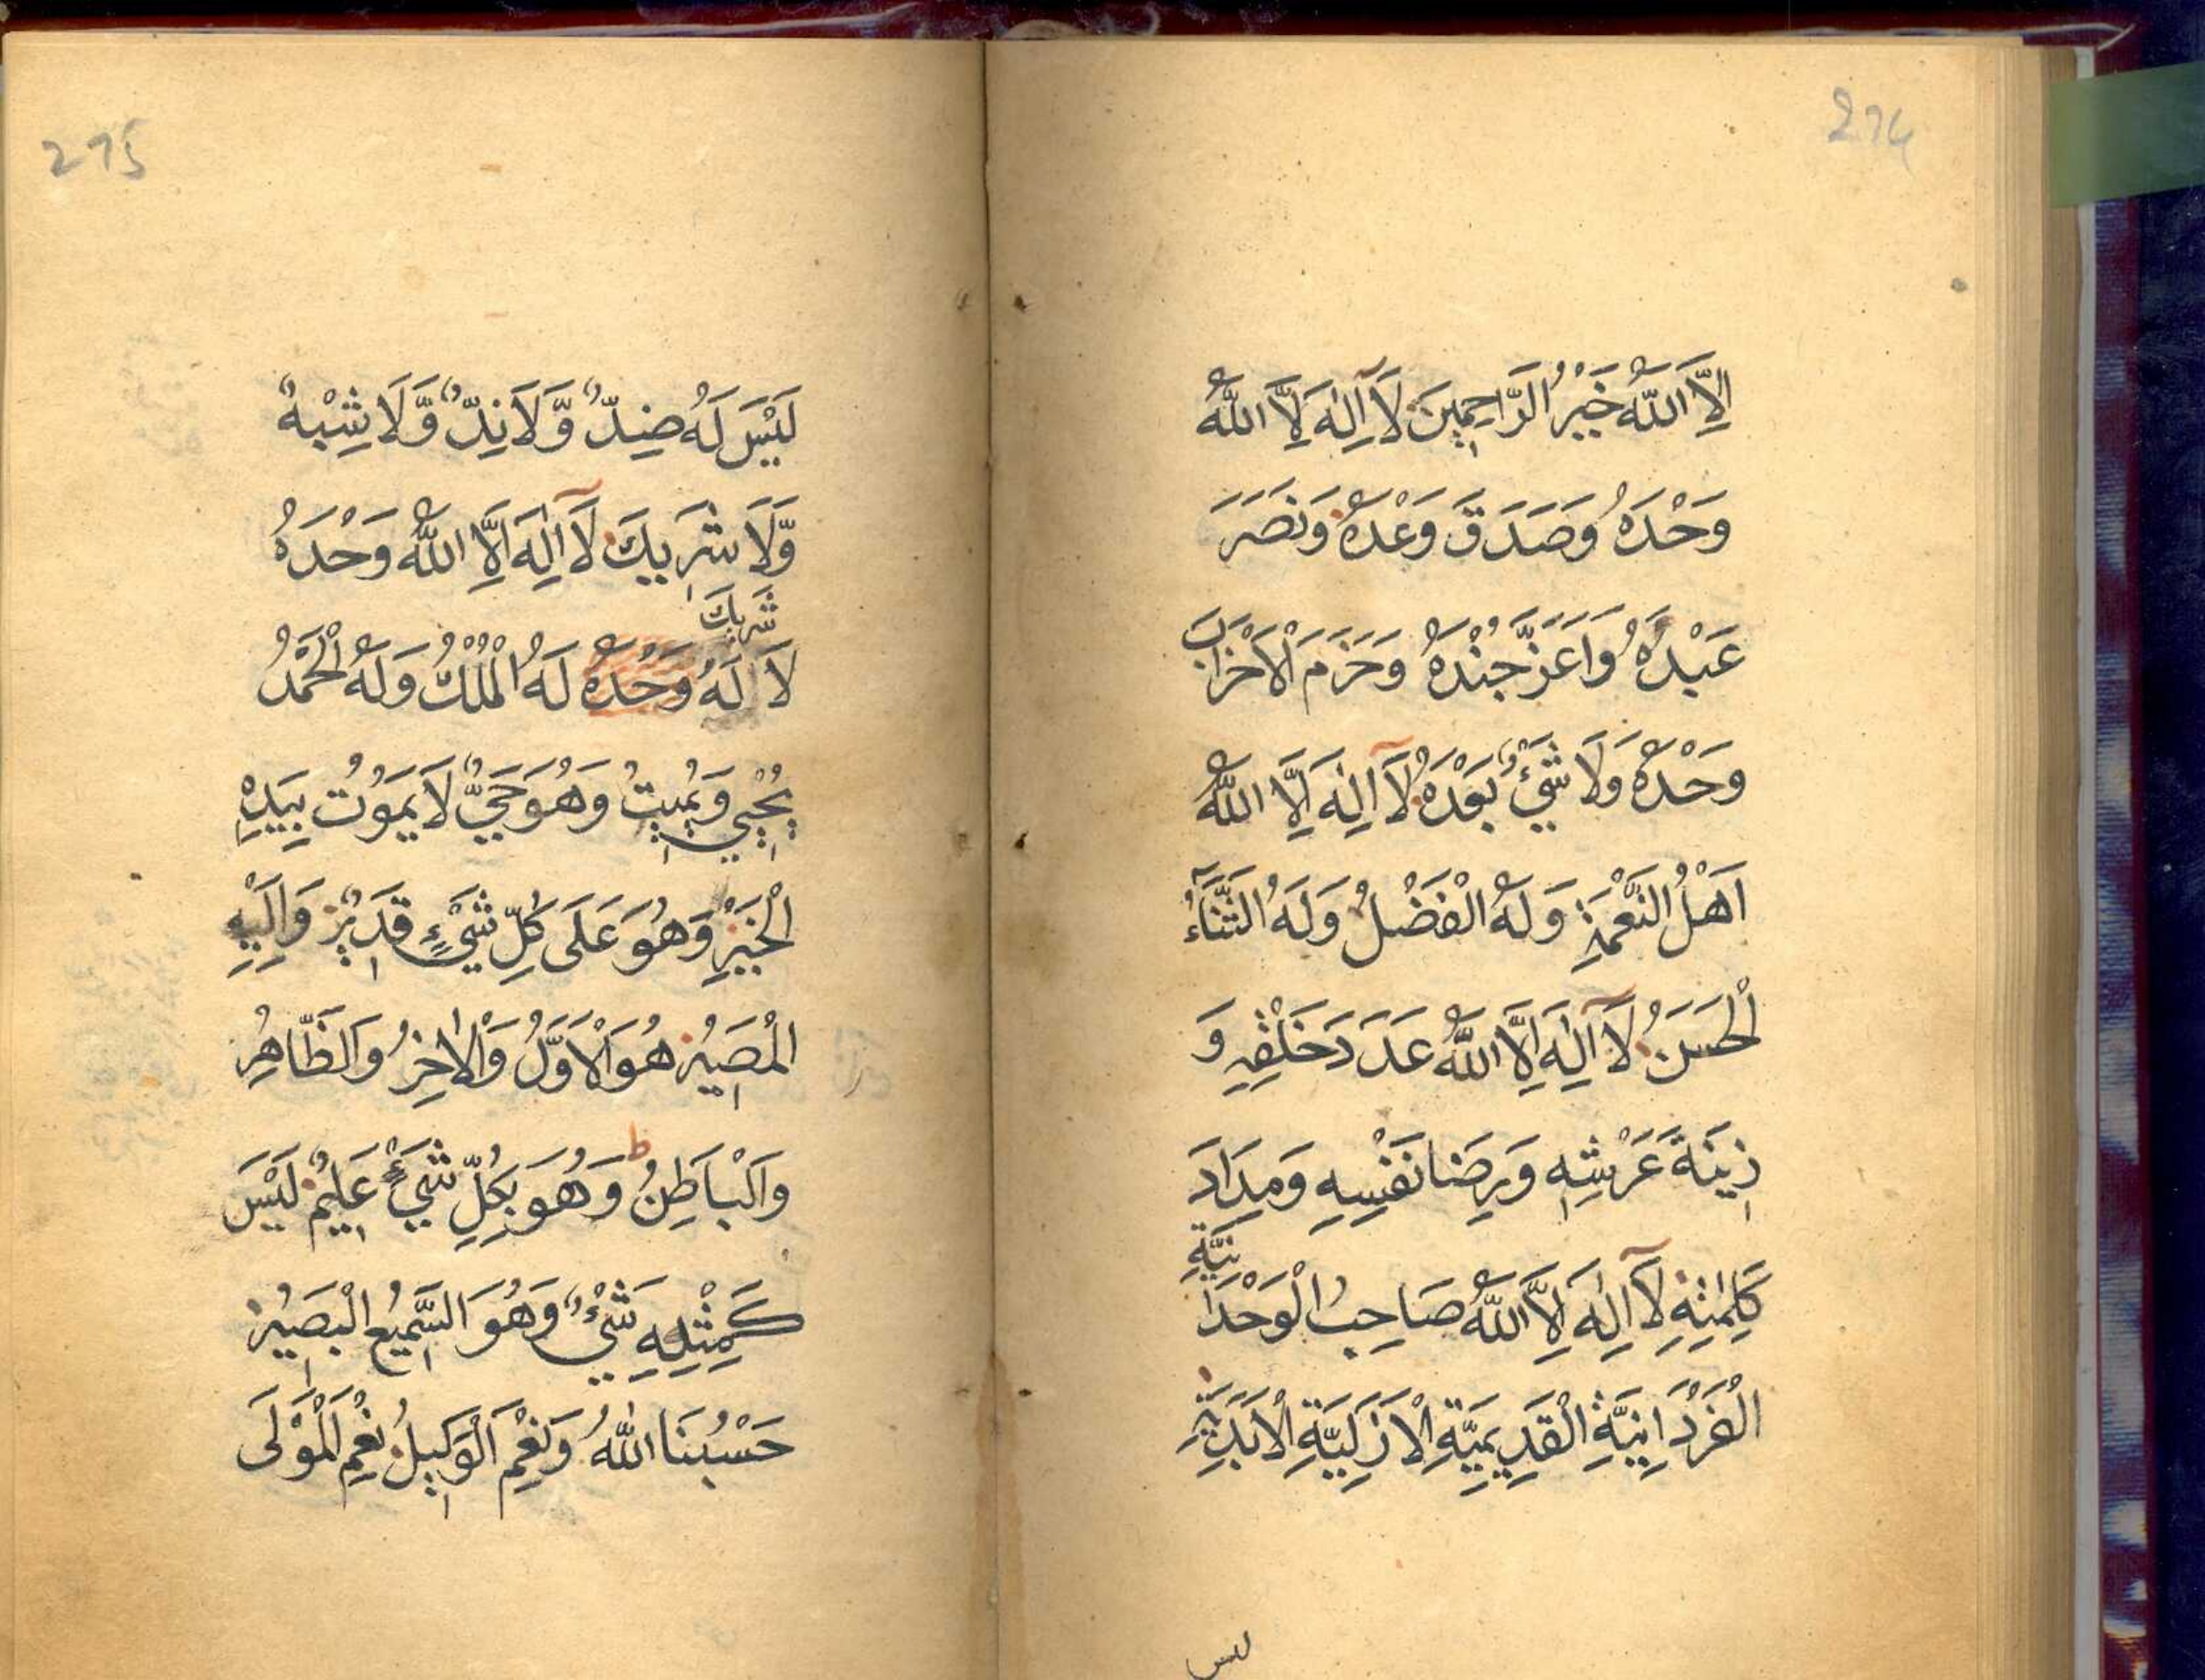 294
اِلَّا اللّٰهُ خَيْرُ الرَّاحِمِيْنَ لَآ اِلٰهَ اِلَّا اللّٰهُ
وَحْدَهٗ وَصَدَقَ وَعْدَهٗ وَنَصَرَ
عَبْدَهٗ وَاَعَزَّ جُنْدَهٗ وَحَزَمَ الْاَحْزَابَ
وَحْدَهٗ وَلَا شَيْءٌ بَعْدَهٗ لَآ اِلٰهَ اِلَّا اللّٰهُ
اَهْلُ النِّعْمَةِ وَلَهُ الْفَضْلُ وَلَهُ الثَّنَآءُ
الْحَسَنُ لَآ اِلٰهَ اِلَّا اللّٰهُ عَدَدَ خَلْقِهٖ وَ
زِيْنَةَ عَرْشِهٖ وَرِضَا نَفْسِهٖ وَمِدَادَ
كَلِمٰتِهٖ لَآ اِلٰهَ اِلَّا اللّٰهُ صَاحِبُ الْوَحْدَا
نِيَّةِ
الْفَرْدَانِيَّةِ الْقَدِيْمِيَّةِ الْاَزَلِيَّةِ الْاَبَدِيَّةِ
ليس
295
لَيْسَ لَهٗ ضِدٌّ وَّلَا نِدٌّ وَّلَا شِبْهٌ
وَّلَا شَرِيْكَ لَآ اِلٰهَ اِلَّا اللّٰهُ وَحْدَهٗ
شَرِيْكَ
لَا لَهٗ وَحْدَهٗ لَهُ الْمُلْكُ وَلَهُ الْحَمْدُ
يُحْيِيْ وَيُمِيْتُ وَهُوَ حَيٌّ لَا يَمُوْتُ بِيَدِهِ
الْخَيْرِ وَهُوَ عَلَى كُلِّ شَيْءٍ قَدِيْرٌ وَاِلَيْهِ
الْمَصِيْرُ هُوَ الْاَوَّلُ وَالْاٰخِرُ وَالظَّاهِرُ
وَالْبَاطِنُ ط وَهُوَ بِكُلِّ شَيْءٍ عَلِيْمٌ لَيْسَ
كَمِثْلِهٖ شَيْءٌ وَهُوَ السَّمِيْعُ الْبَصِيْرُ
حَسْبُنَا اللّٰهُ وَنِعْمَ الْوَكِيْلُ نِعْمَ الْمَوْلَى